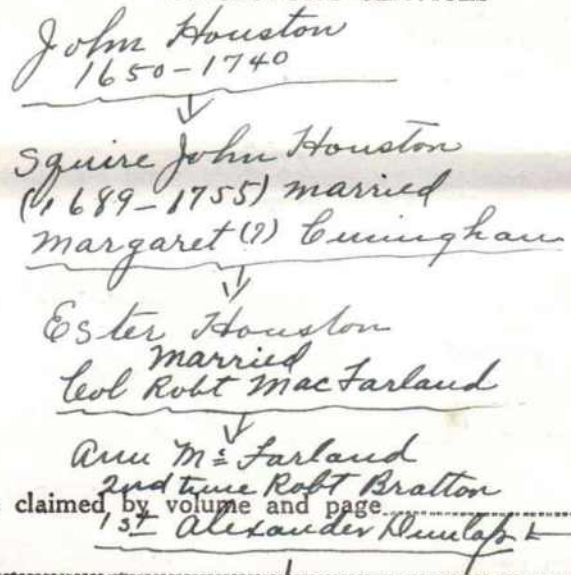 John Houston
1650-1740
Squire John Houston
(1689-1755) married
Margaret (?) Cuningham
Ester Houston
married
Col Robt MacFarland
Ann Mc Farland
2nd time Robt Bratton
claimed by volume and page
1st Alexander Dunlap